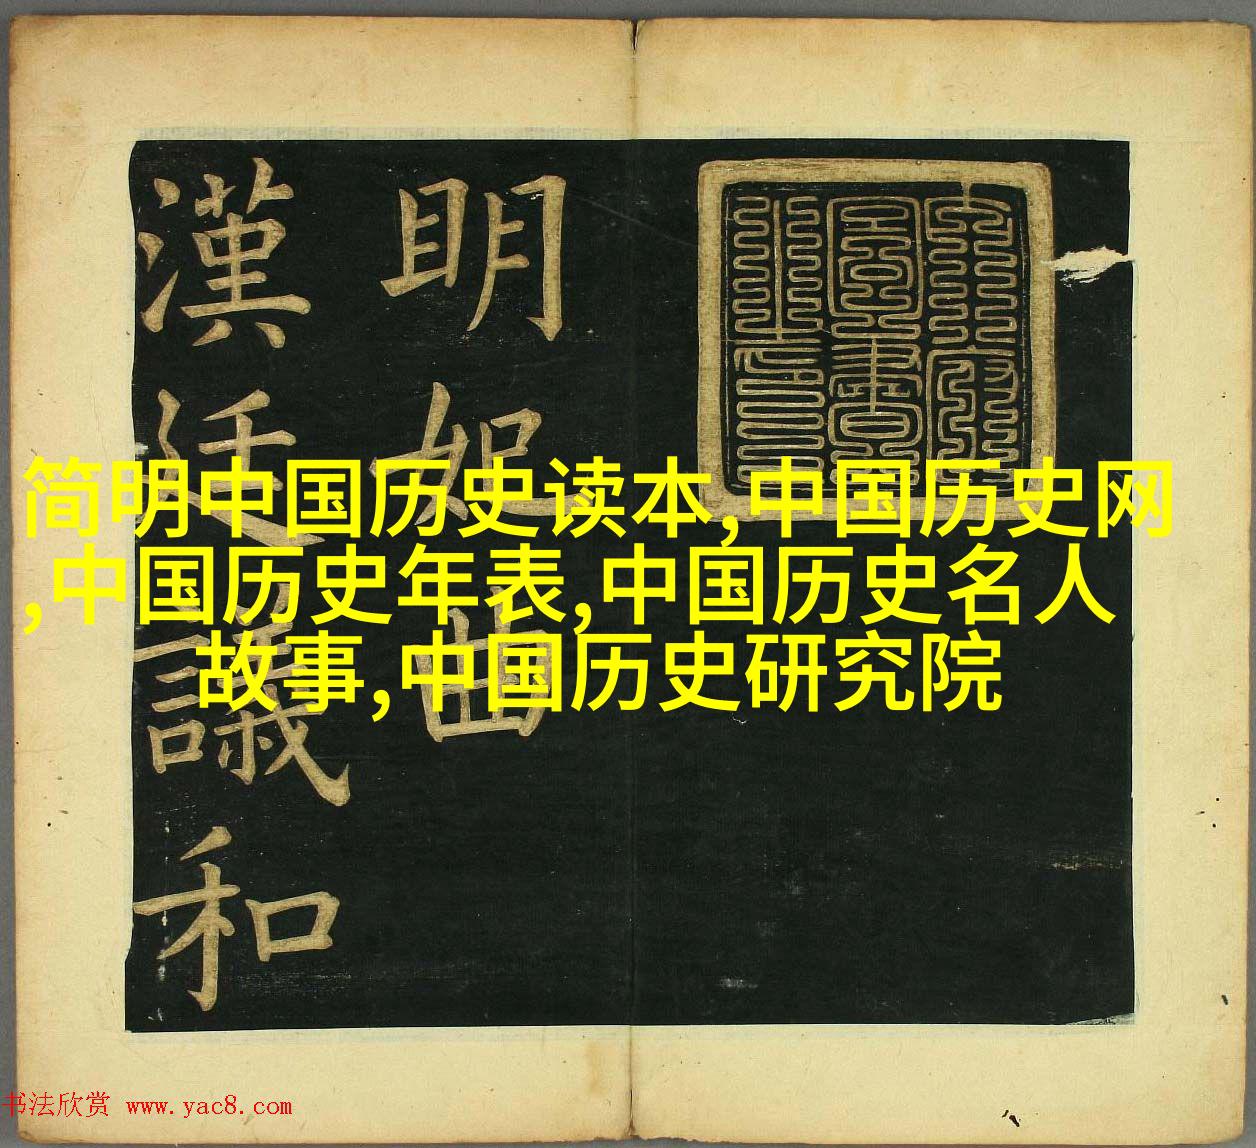 明妃曲
漢廷議和
简明中国历史读本,中国历史网
,中国历史年表,中国历史名人
故事,中国历史研究院
书法欣赏 www.yac8.com